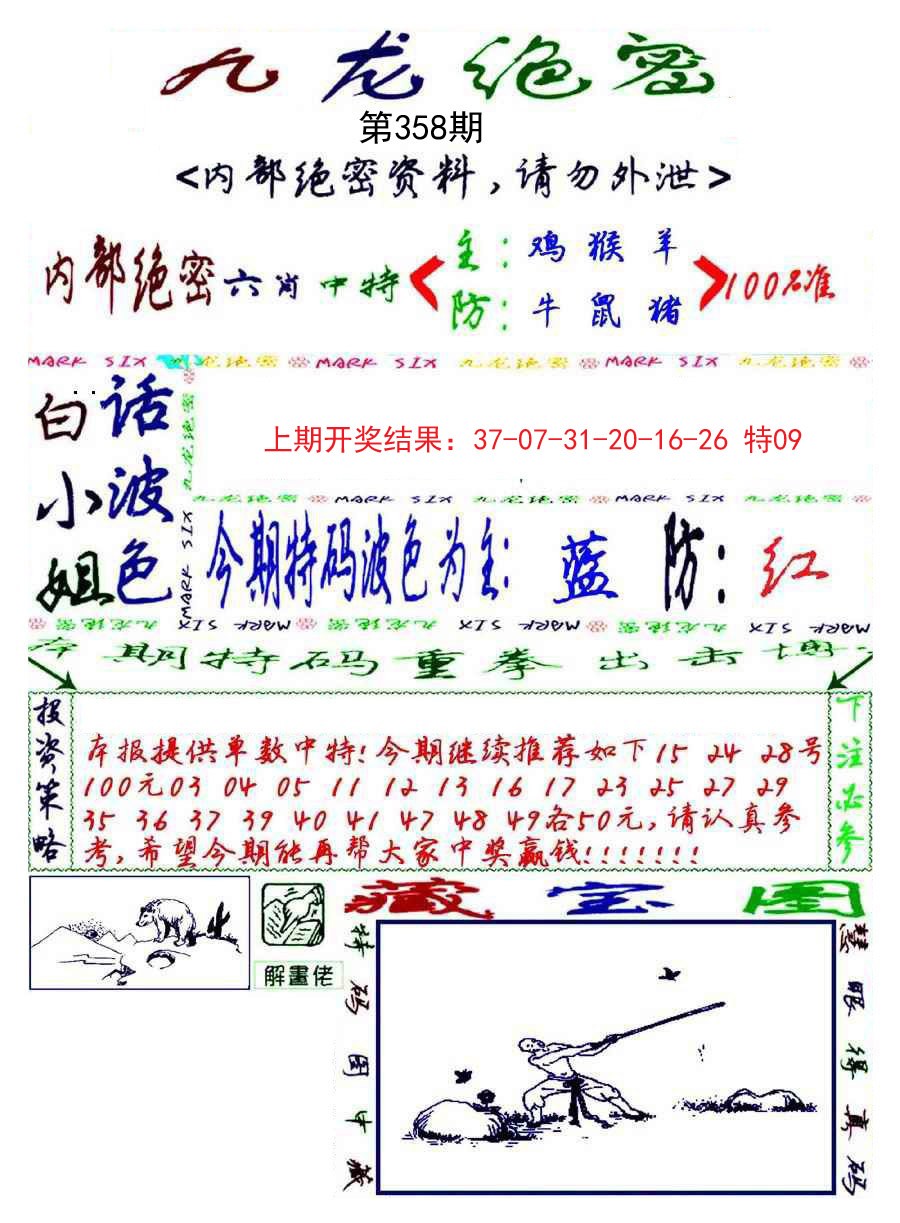 九龙绝密
第358期
<内部绝密资料，请勿外泄>
内部绝密六肖中特
主：鸡猴羊
防：牛鼠猪
100%准
MARK SIX 九龙绝密 MARK SIX 九龙绝密 MARK SIX 九龙绝密
白话
小波
姐色
九龙绝密
MARK SIX
上期开奖结果：37-07-31-20-16-26 特09
九龙绝密 MARK SIX 九龙绝密 MARK SIX 九龙绝密
今期特码波色为主：蓝 防：红
九龙绝密 MARK SIX 九龙绝密 MARK SIX 九龙绝密 MARK SIX
本期特码重拳出击
投资策略
本报提供单数中特！今期继续推荐如下15 24 28号
100元03 04 05 11 12 13 16 17 23 25 27 29
35 36 37 39 40 41 47 48 49各50元，请认真参
考，希望今期能再帮大家中奖赢钱！！！！！！！
下注必参
解畫佬
藏宝图
特码图中藏
慧眼得真码